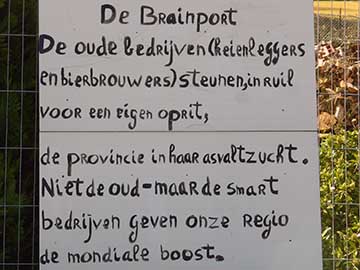 De Brainport
De oude bedrijven (keienleggers
en bierbrouwers) steunen, in ruil
voor een eigen oprit,
de provincie in haar asvaltzucht.
Niet de oud-maar de smart
bedrijven geven onze regio
de mondiale boost.